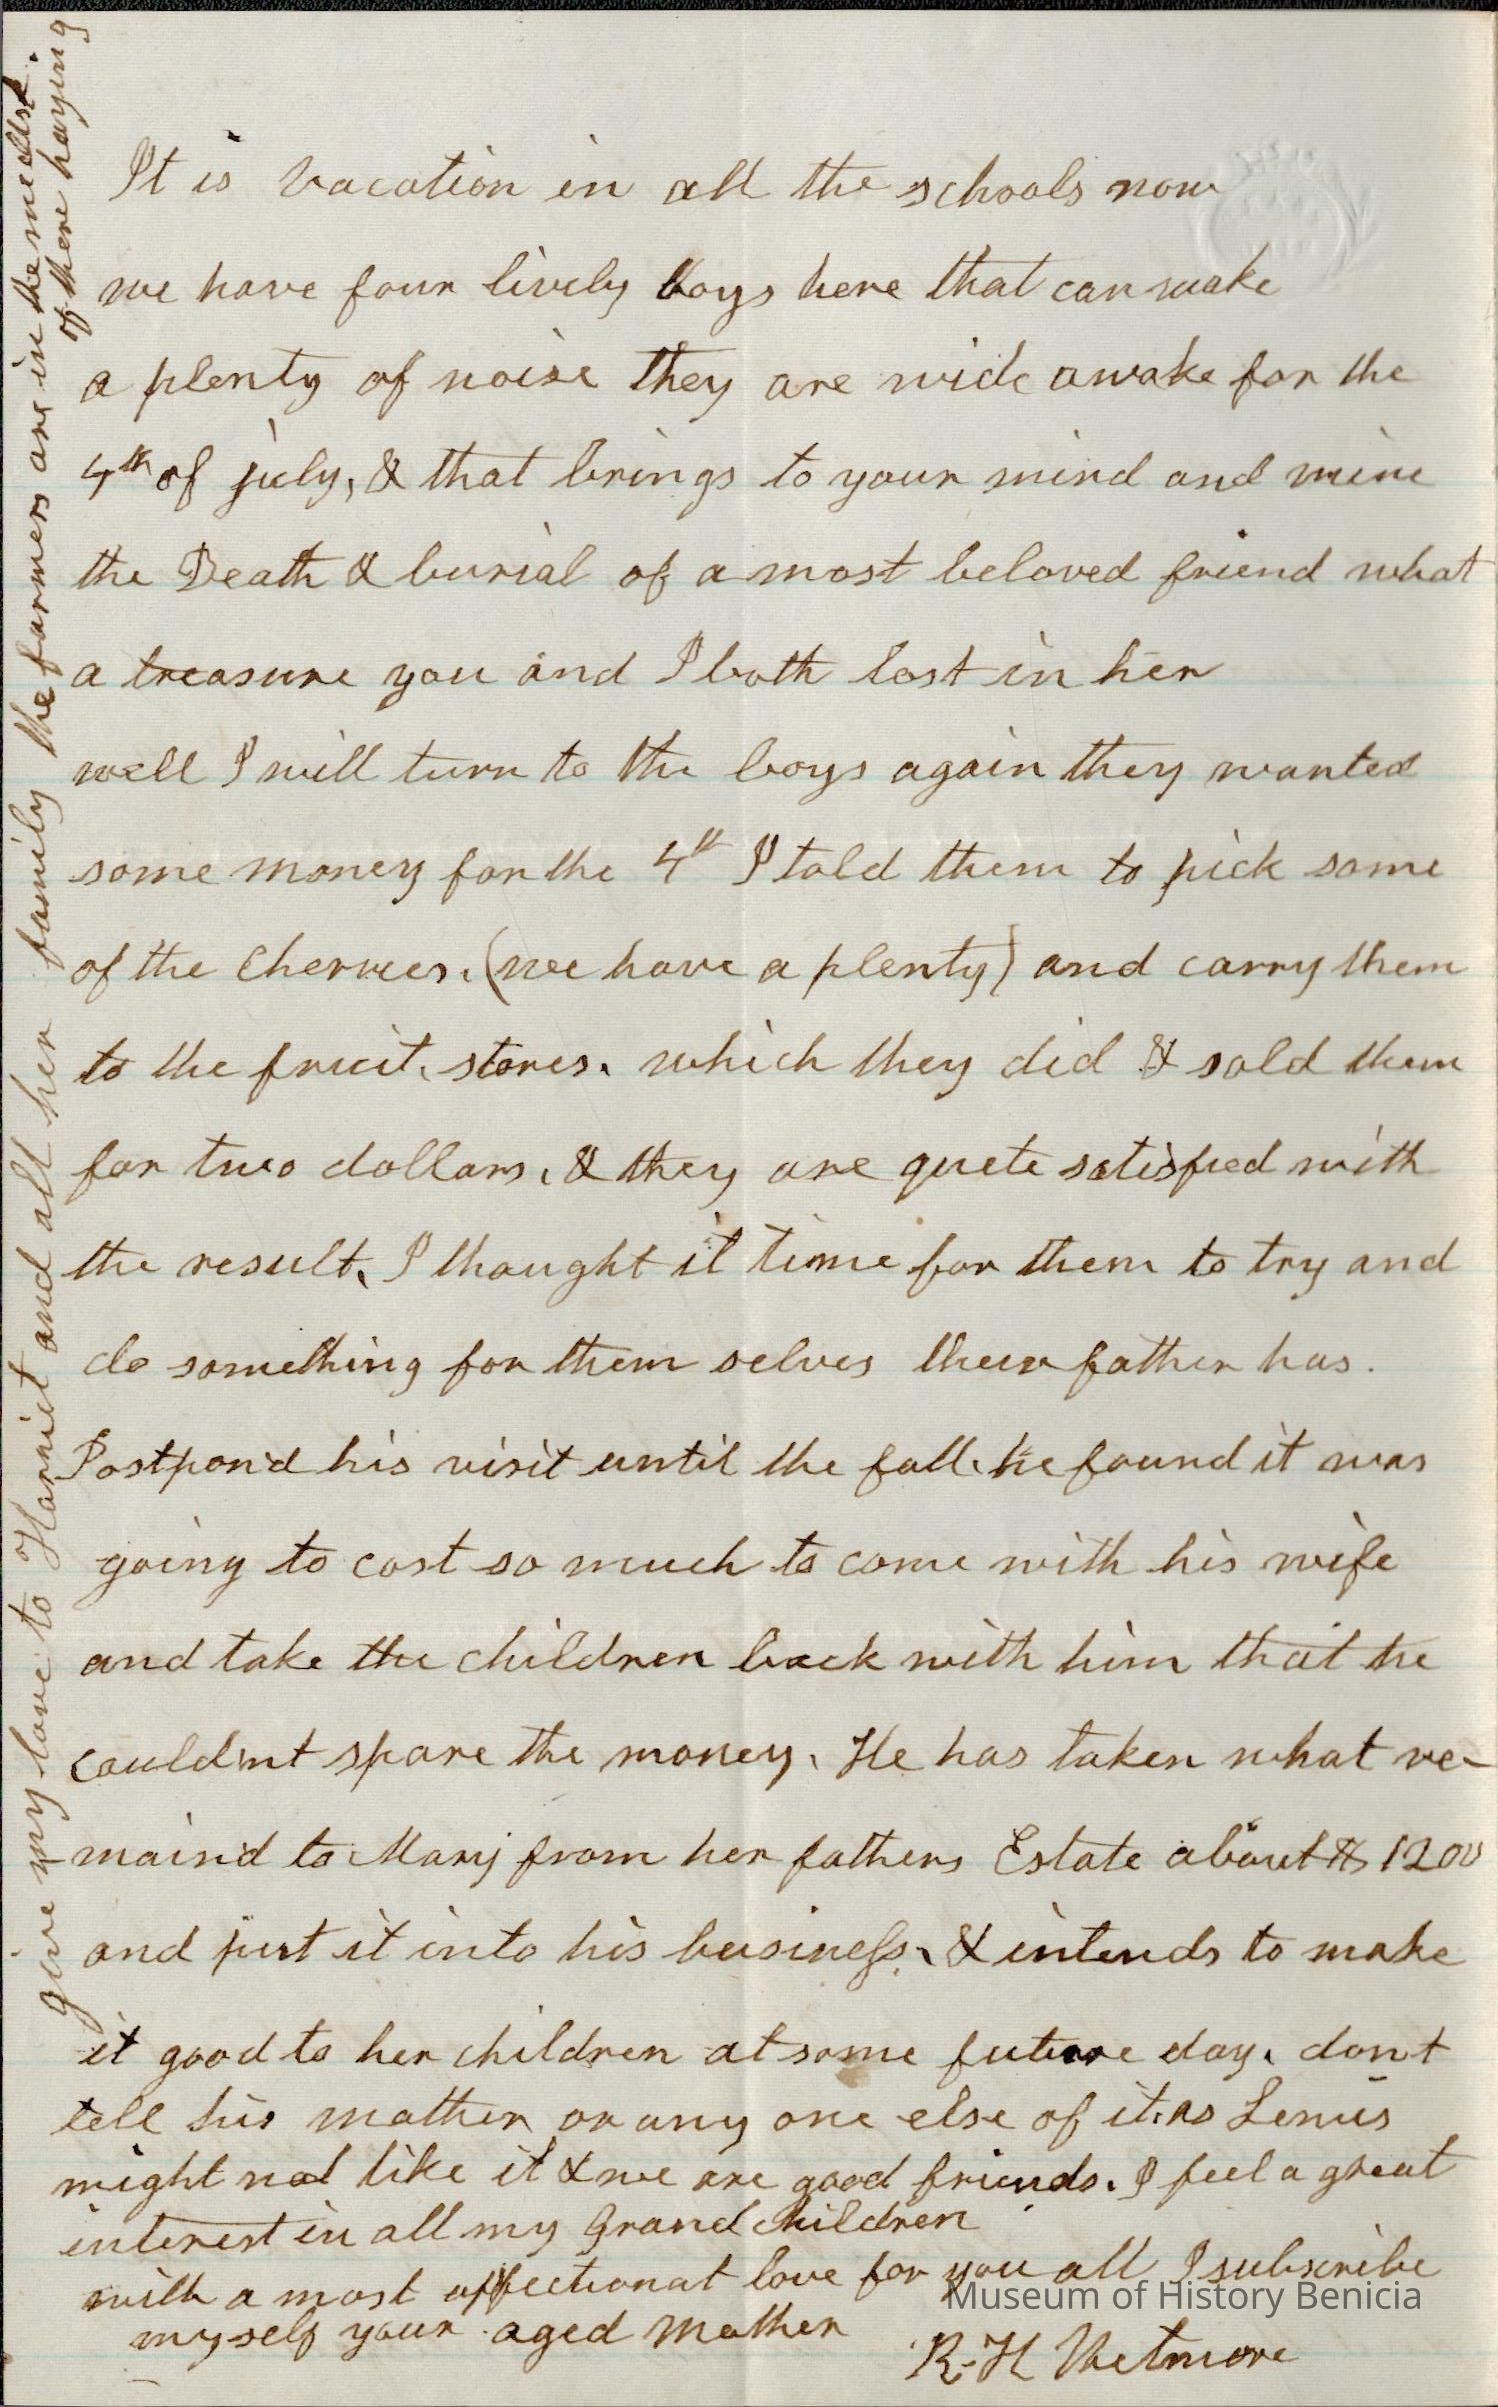 It is vacation in all the schools now
we have four lively boys here that can make
a plenty of noise they are wide awake for the
4th of july, & that brings to your mind and mine
the Death & burial of a most beloved friend what
a treasure you and I both lost in her
well I will turn to the boys again they wanted
some money for the 4th I told them to pick some
of the Cherries. (we have a plenty) and carry them
to the fruit, stores. which they did & sold them
for two dollars, & they are quete satisfied with
the result, I thought it time for them to try and
do something for them selves their father has.
Postpon'd his visit until the fall. he found it was
going to cost so much to come with his wife
and take the children back with him that he
couldnt spare the money. He has taken what re-
-main'd to Mary from her fathers Estate about $1200
and put it into his business, & intends to make
it good to her children at some future day. dont
tell his mother or any one else of it. as Lewis
might not like it & we are good friends. I feel a great
interest in all my Grand Children
with a most affectionat love for you all I subscribe
myself your aged Mother
R. H. Wetmore
give my love to Harriet and all her family the farmers are in the medst.
of there haying
Museum of History Benicia